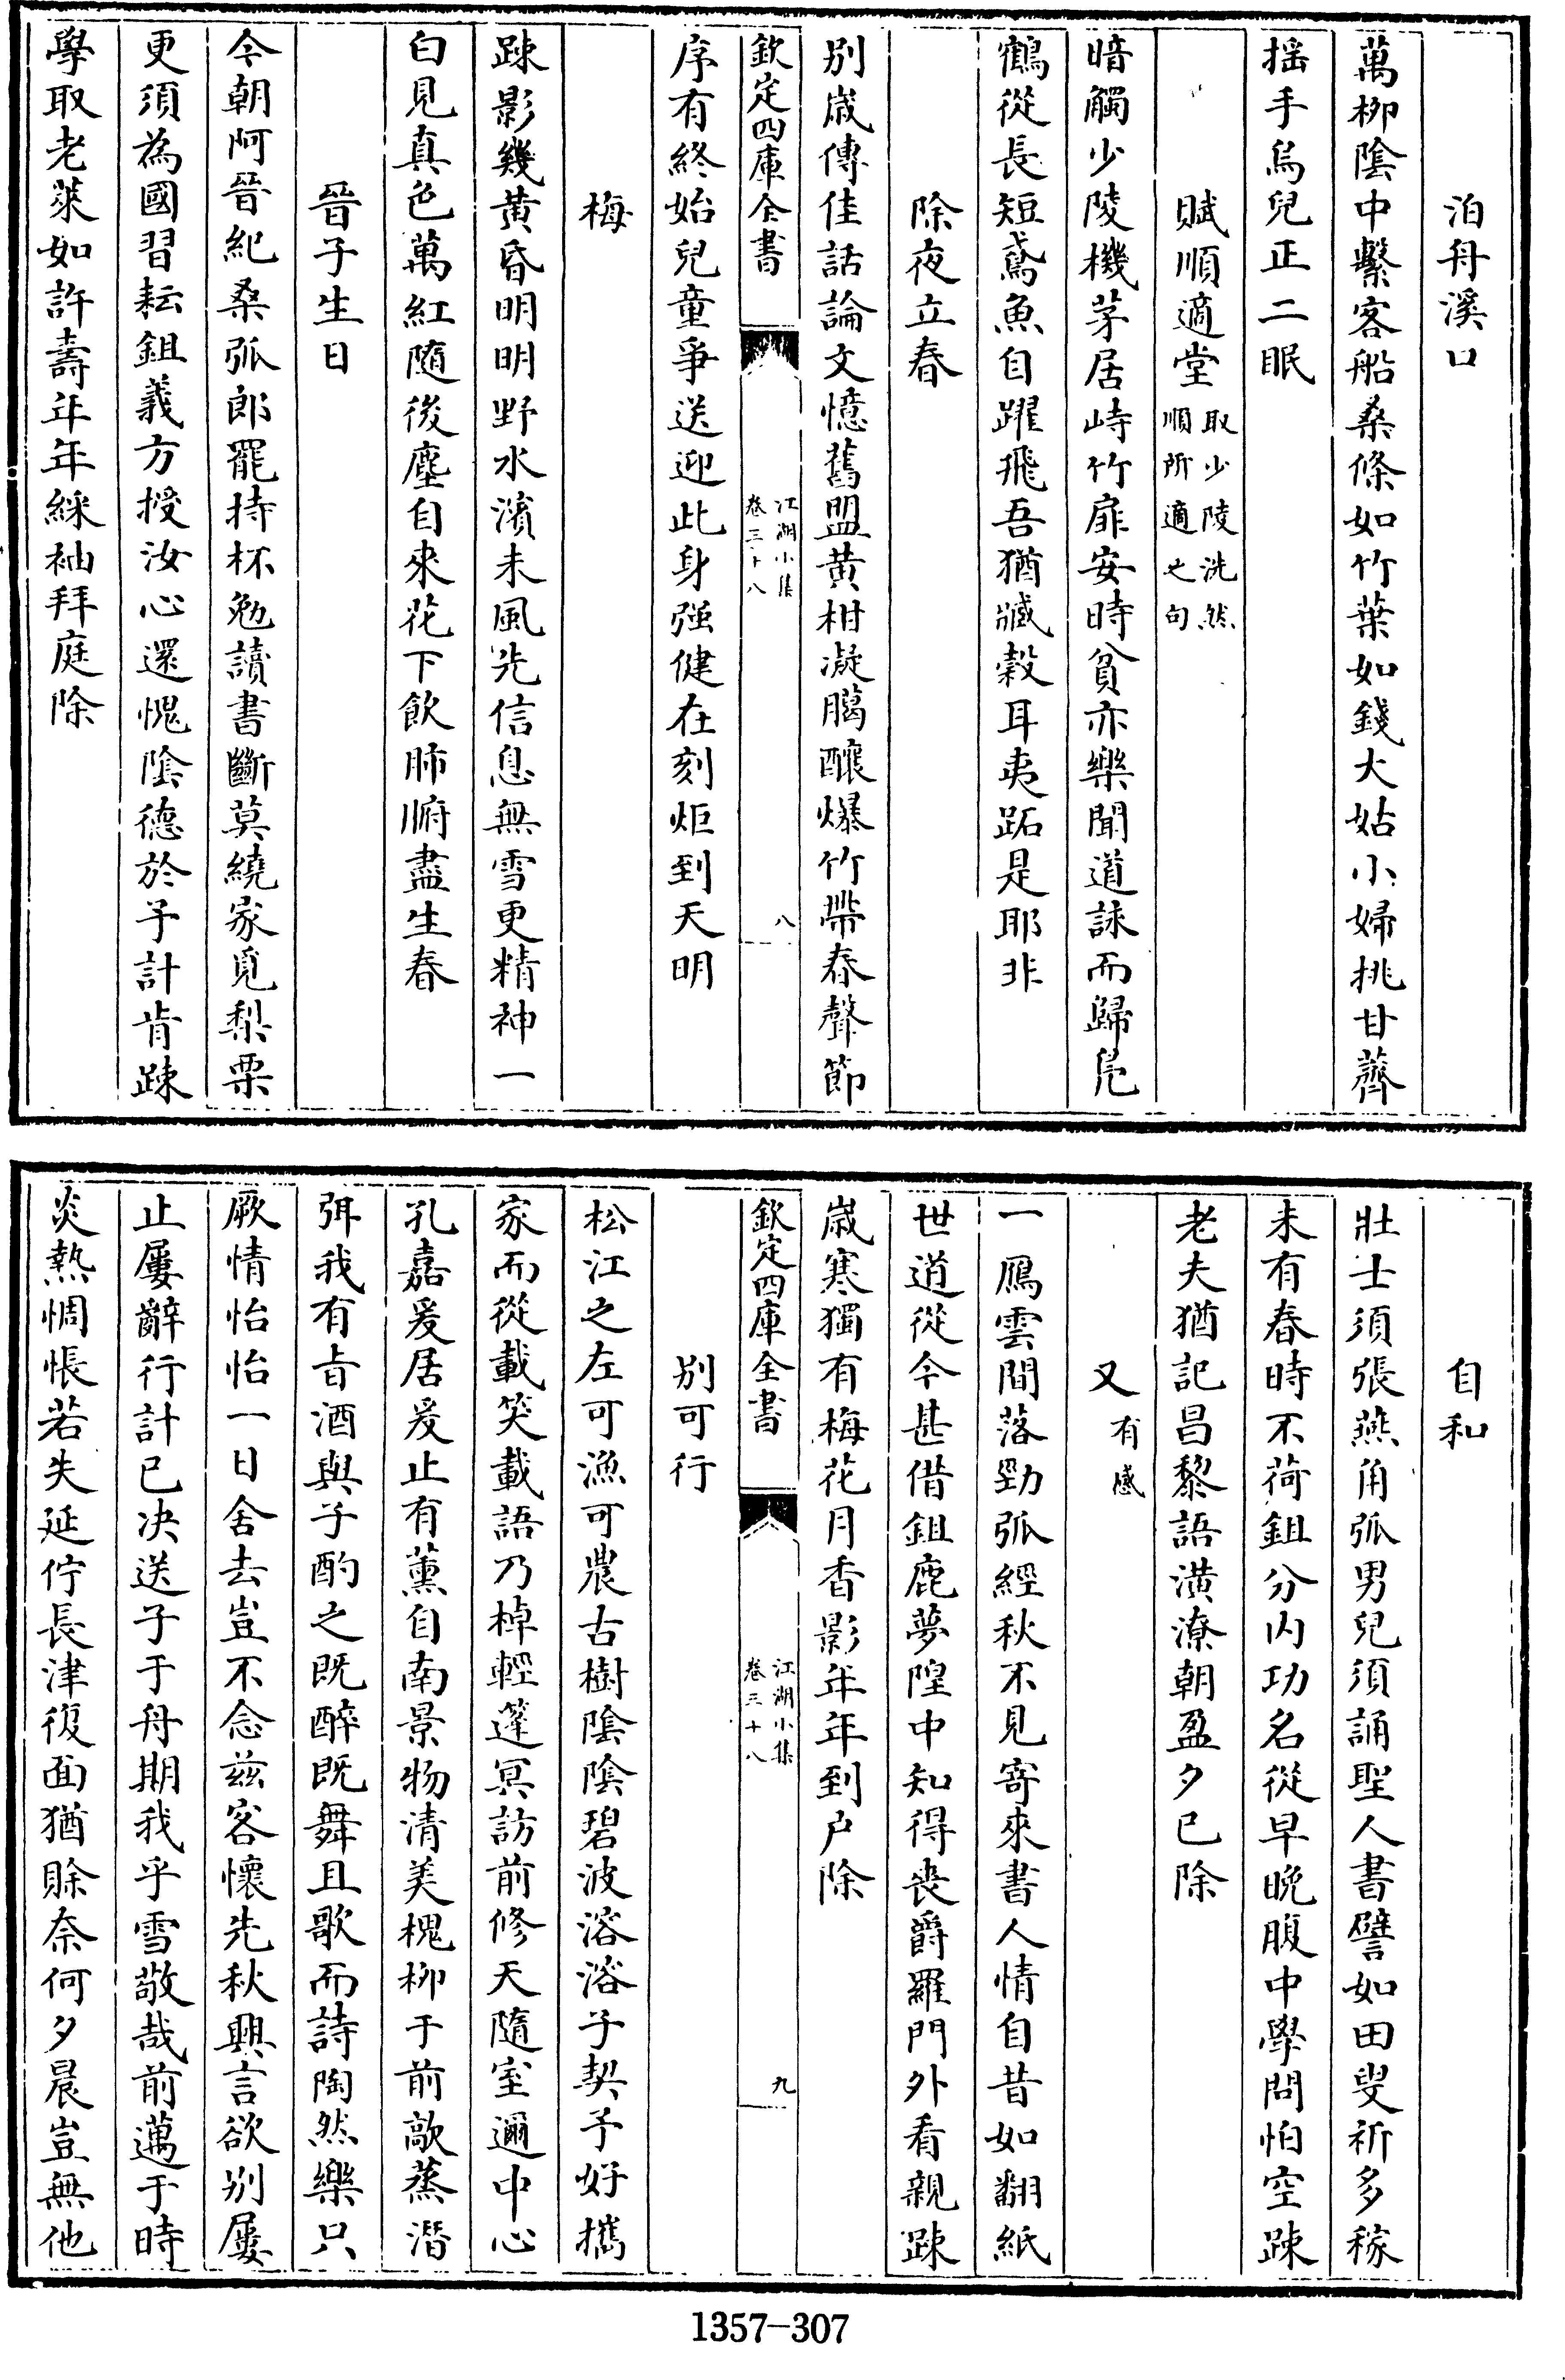 泊舟溪口
萬栁陰中繫客船桑條如竹葉如錢大姑小婦挑甘薺
揺手烏兒正二眠
賦順適堂取少陵洗然順所適之句
暗觸少陵機茅居峙竹扉安時貧亦樂聞道詠而歸凫
鶴從長短鳶魚自躍飛吾猶臧榖耳夷跖是耶非
除夜立春
别嵗傳佳話論文憶舊盟黄柑凝臈釀爆竹帶春聲節
欽定四庫全書
江湖小集
卷三十八
八
序有終始兒童爭送迎此身强健在刻炬到天明
梅
踈影幾黄昏明明野水濱未風先信息無雪更精神一
白見真色萬紅隨後塵自來花下飲肺腑盡生春
晉子生日
今朝阿晉紀桑弧郎罷持杯勉讀書斷莫繞家覓梨栗
更須為國習耘鉏義方授汝心還愧陰德於予計肯踈
學取老萊如許壽年年綵袖拜庭除
自和
壯士須張燕角弧男兒須誦聖人書譬如田叟祈多稼
未有春時不荷鉏分内功名從早晚腹中學問怕空踈
老夫猶記昌黎語潢潦朝盈夕已除
又有感
一鴈雲間落勁弧經秋不見寄來書人情自昔如翻紙
世道從今甚借鉏鹿夢隍中知得喪爵羅門外看親踈
嵗寒獨有梅花月香影年年到户除
欽定四庫全書
江湖小集
卷三十八
九
别可行
松江之左可漁可農古樹陰陰碧波溶溶子契予好攜
家而從載笑載語乃棹輕篷冥訪前修天隨室邇中心
孔嘉爰居爰止有薫自南景物清美槐栁于前歊蒸潛
弭我有㫖酒與子酌之既醉既舞且歌而詩陶然樂只
厥情怡怡一日舍去豈不念兹客懷先秋興言欲别屢
止屢辭行計已决送子于舟期我乎雪敬哉前邁于時
炎熱惆悵若失延佇長津復面猶賒奈何夕晨豈無他
1357-307